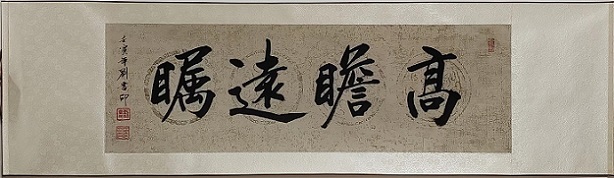 高瞻遠矚
壬寅年劉書印